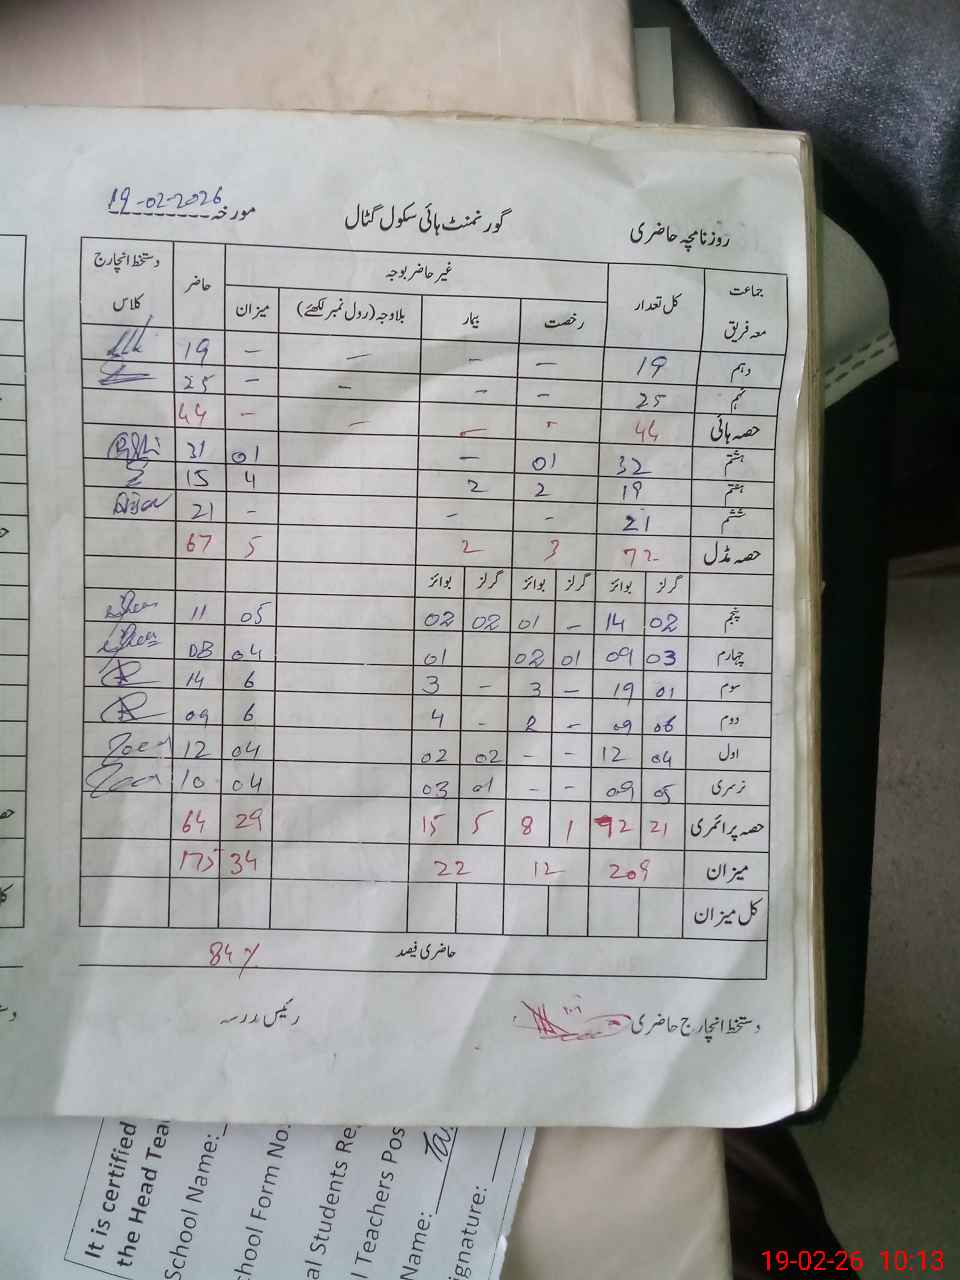 روزنامچہ حاضری گورنمنٹ ہائی سکول گٹال مورخہ 19-02-2026
جماعت معہ فریق | کل تعداد | غیر حاضر بوجہ | حاضر | دستخط انچارج کلاس
رخصت | بیمار | بلاوجہ (رول نمبر لکھئے) | میزان
دہم | 19 | - | - | - | - | 19
نہم | 25 | - | - | - | - | 25
حصہ ہائی | 44 | - | - | - | - | 44
ہشتم | 32 | 01 | - | 01 | 31
ہفتم | 19 | 2 | 2 | 4 | 15
ششم | 21 | - | - | - | 21
حصہ مڈل | 72 | 3 | 2 | 5 | 67
گرلز | بوائز | گرلز | بوائز | گرلز | بوائز
پنجم | 02 | 14 | - | 01 | 02 | 02 | 05 | 11
چہارم | 03 | 09 | 01 | 02 | 01 | 04 | 08
سوم | 01 | 19 | - | 3 | - | 3 | 6 | 14
دوم | 06 | 09 | - | 2 | - | 4 | 6 | 09
اول | 04 | 12 | - | - | 02 | 02 | 04 | 12
نرسری | 05 | 09 | - | - | 01 | 03 | 04 | 10
حصہ پرائمری | 21 | 72 | 1 | 8 | 5 | 15 | 29 | 64
میزان | 209 | 12 | 22 | 34 | 175
کل میزان
حاضری فیصد 84 %
دستخط انچارج حاضری رئیس مدرسہ
It is certified
the Head Tea
School Name:
chool Form No.
al Students Re
l Teachers Pos
Name:
ignature:
19-02-26 10:13